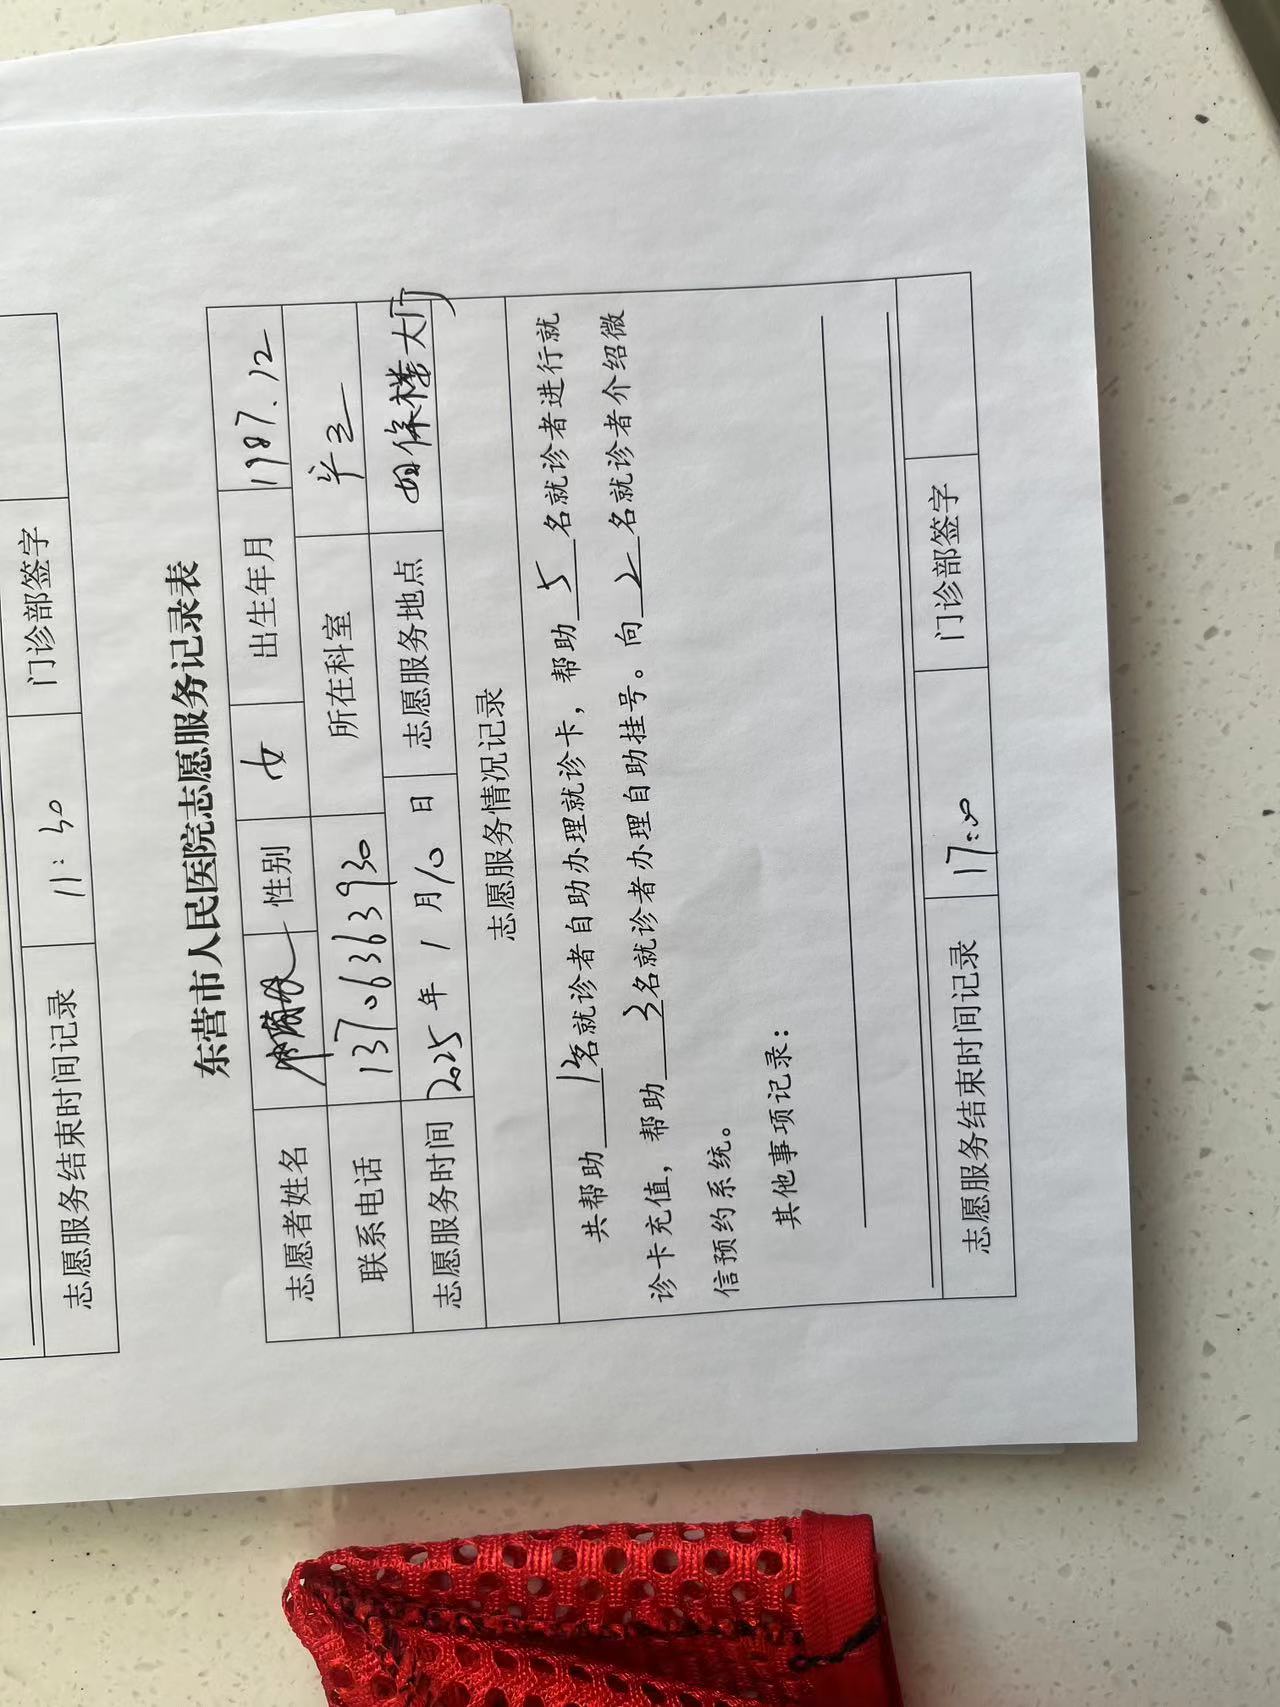 志愿服务结束时间记录 11:30 门诊部签字
东营市人民医院志愿服务记录表
志愿者姓名 性别 女 出生年月 1987.12
联系电话 13706363930 所在科室
志愿服务时间 2025年1月10日 志愿服务地点 妇保楼大厅
志愿服务情况记录
共帮助 名就诊者自助办理就诊卡，帮助5名就诊者进行就
诊卡充值，帮助3名就诊者办理自助挂号。向2名就诊者介绍微
信预约系统。
其他事项记录：
志愿服务结束时间记录 17:00 门诊部签字